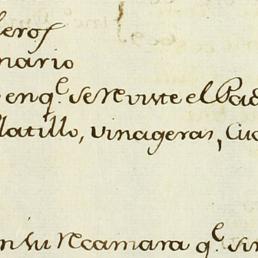 leros
nario
enq.^e se Reviste el Pad
Platillo, vinageras, Cu
n su Recamara q.^e sir